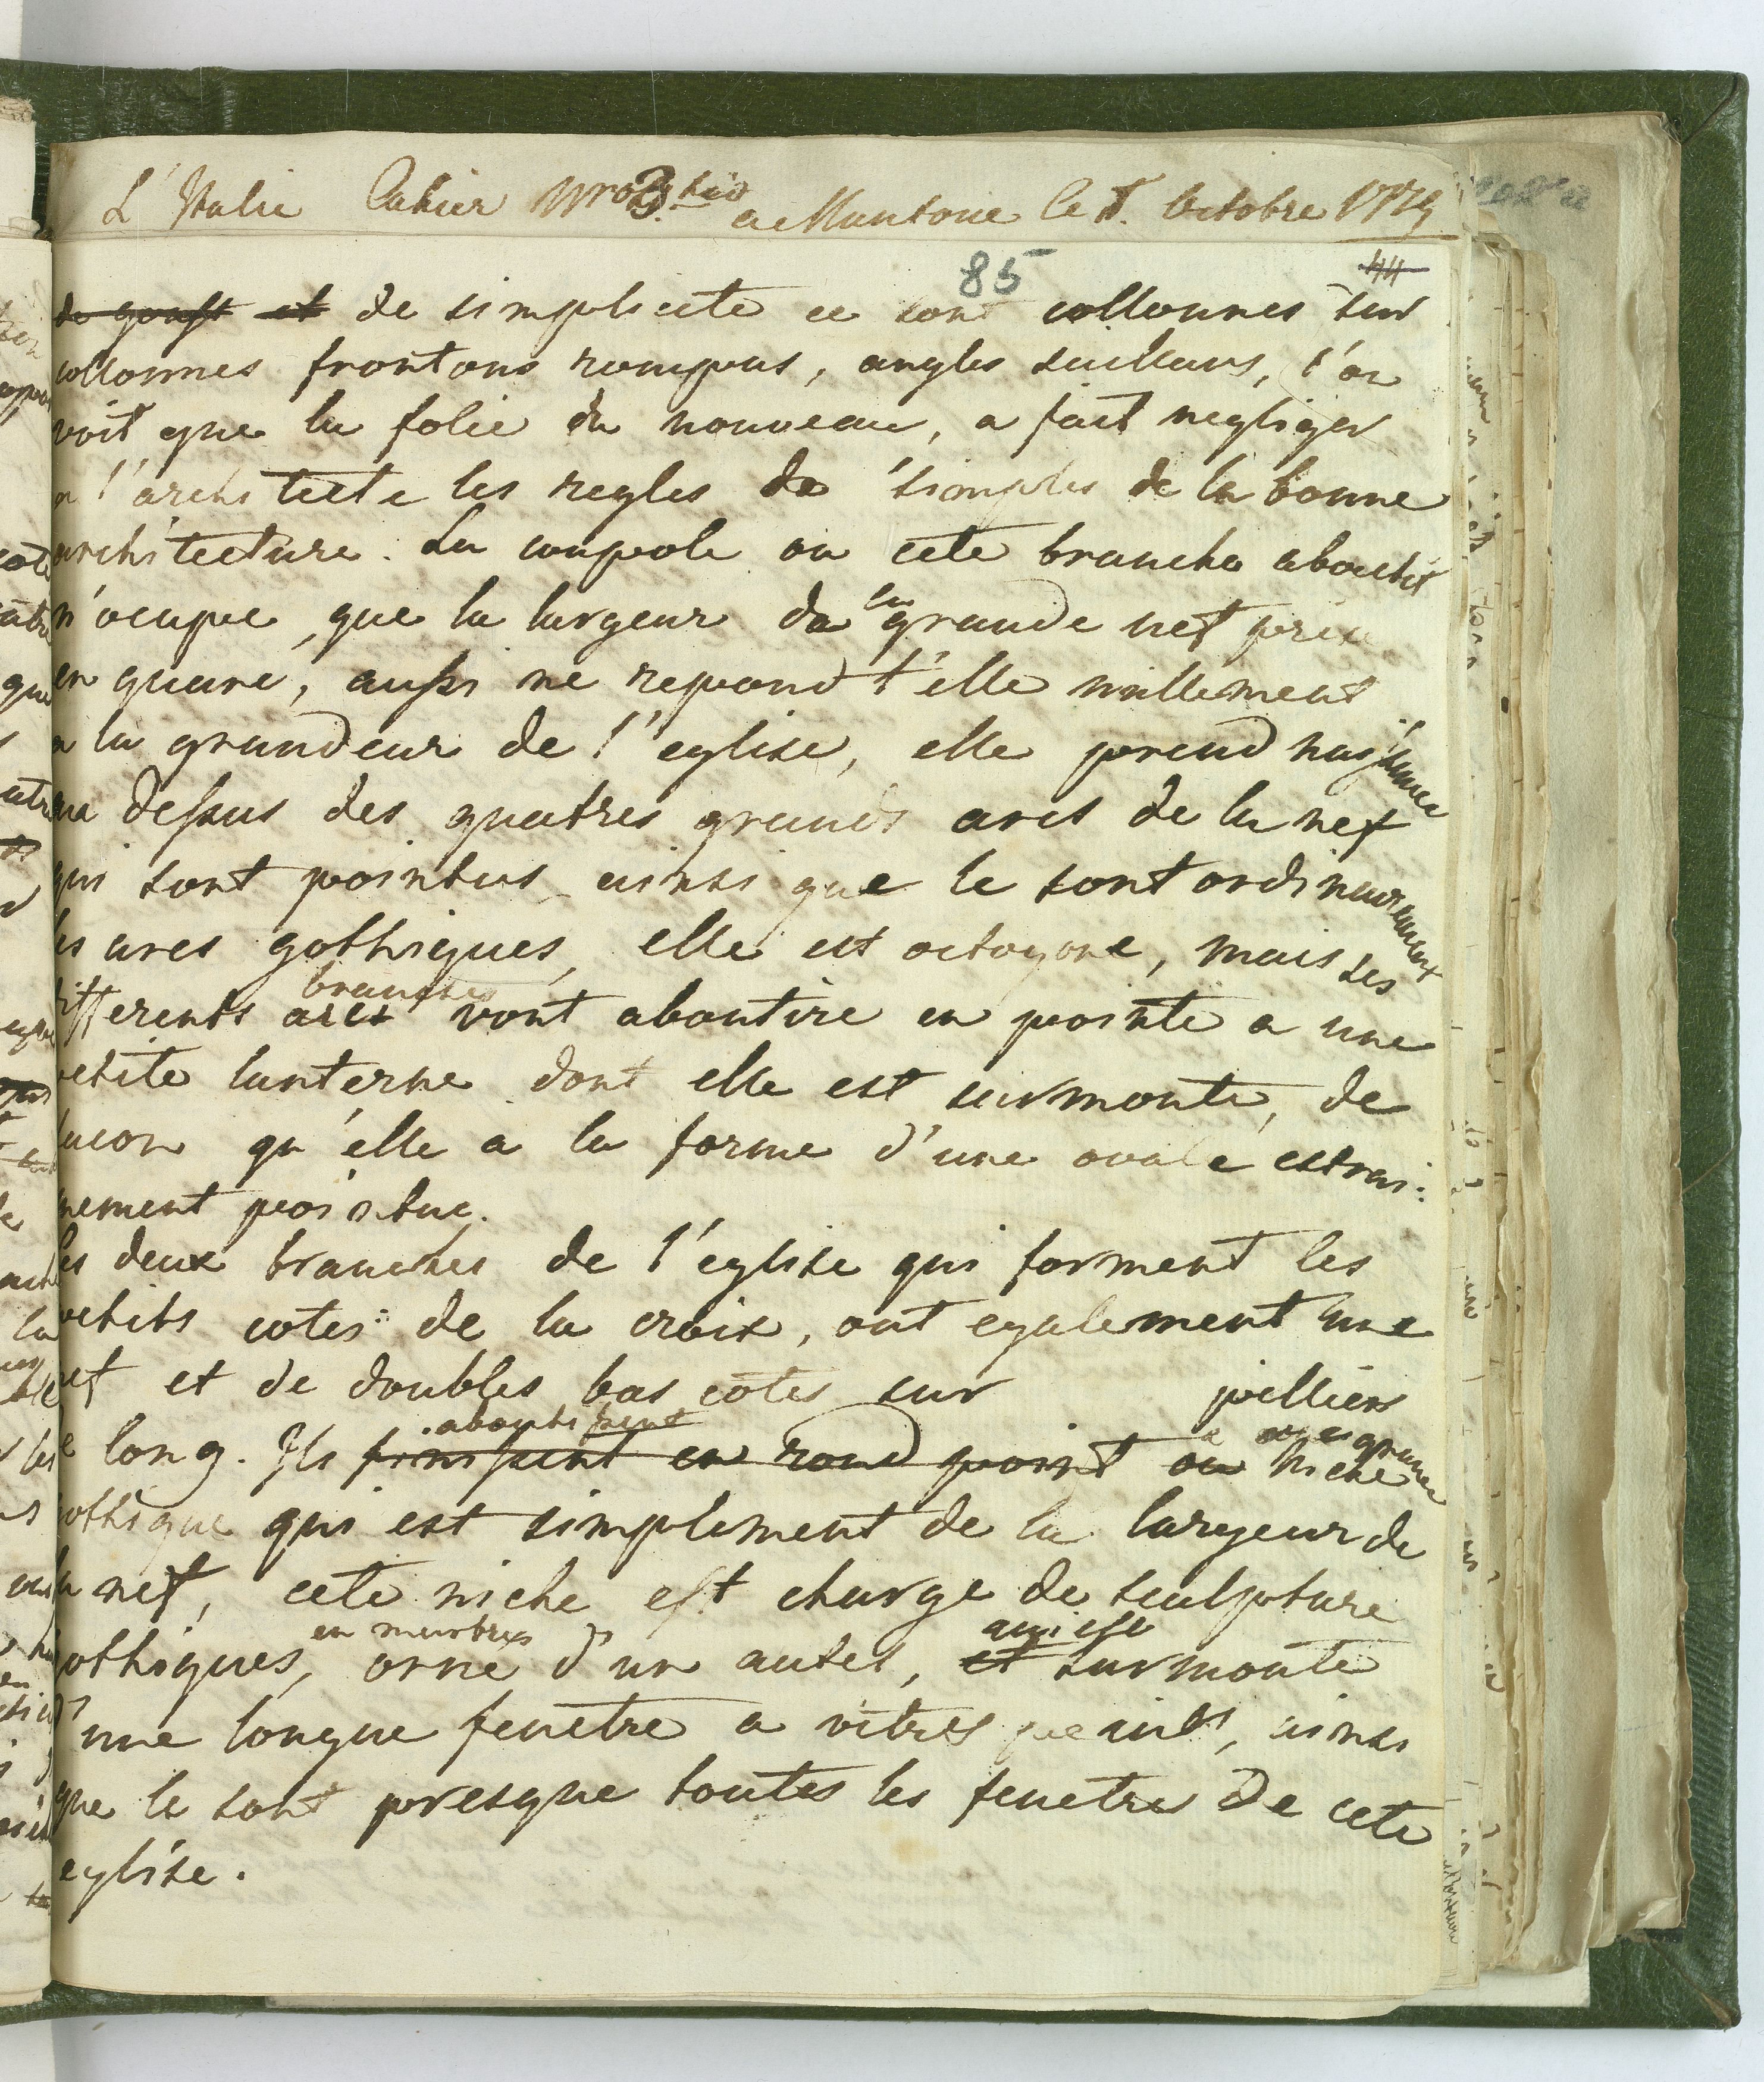 L'Italie Cahier Nro 3. a Mantoue le Octobre
85
44
de goust et de simplicite ce sont collonnes sur
collonnes frontons rompus, angles saillans, l'on
voit que la folie du nouveau, a fait negliger
a l'architecte les regles de simples de la bonne
architecture. La coupole ou cete branche aboutit
n'ocupe que la largeur de la grande nef prise
en quare, aussi ne repond t'elle nullement
a la grandeur de l'eglise, elle prend naissance
au dessus des quatres grands arcs de la nef
qui sont pointus ainsi que le sont ordinairement
les arcs gothiques, elle est octogone, mais ses
branches
differents arcs vont aboutire en pointe a une
petite lanterne dont elle est surmonte, de
facon qu'elle a la forme d'une ovale estrai:
mement pointue.
Les deux branches de l'eglise qui forment les
petits cotes de la croix, ont egalement une
nef et de doubles bas cotes sur pilliers
aboutissent a grande
le long. Ils finissent en rond point ou niche
gothique qui est simplement de la largeur de
la nef, cete niche est charge de sculpture
en marbres
gothiques, orne d'un autel, et surmonte
d'une longue fenetre a vitres peints, ainsi
que le sont presque toutes les fenetres de cete
eglise.